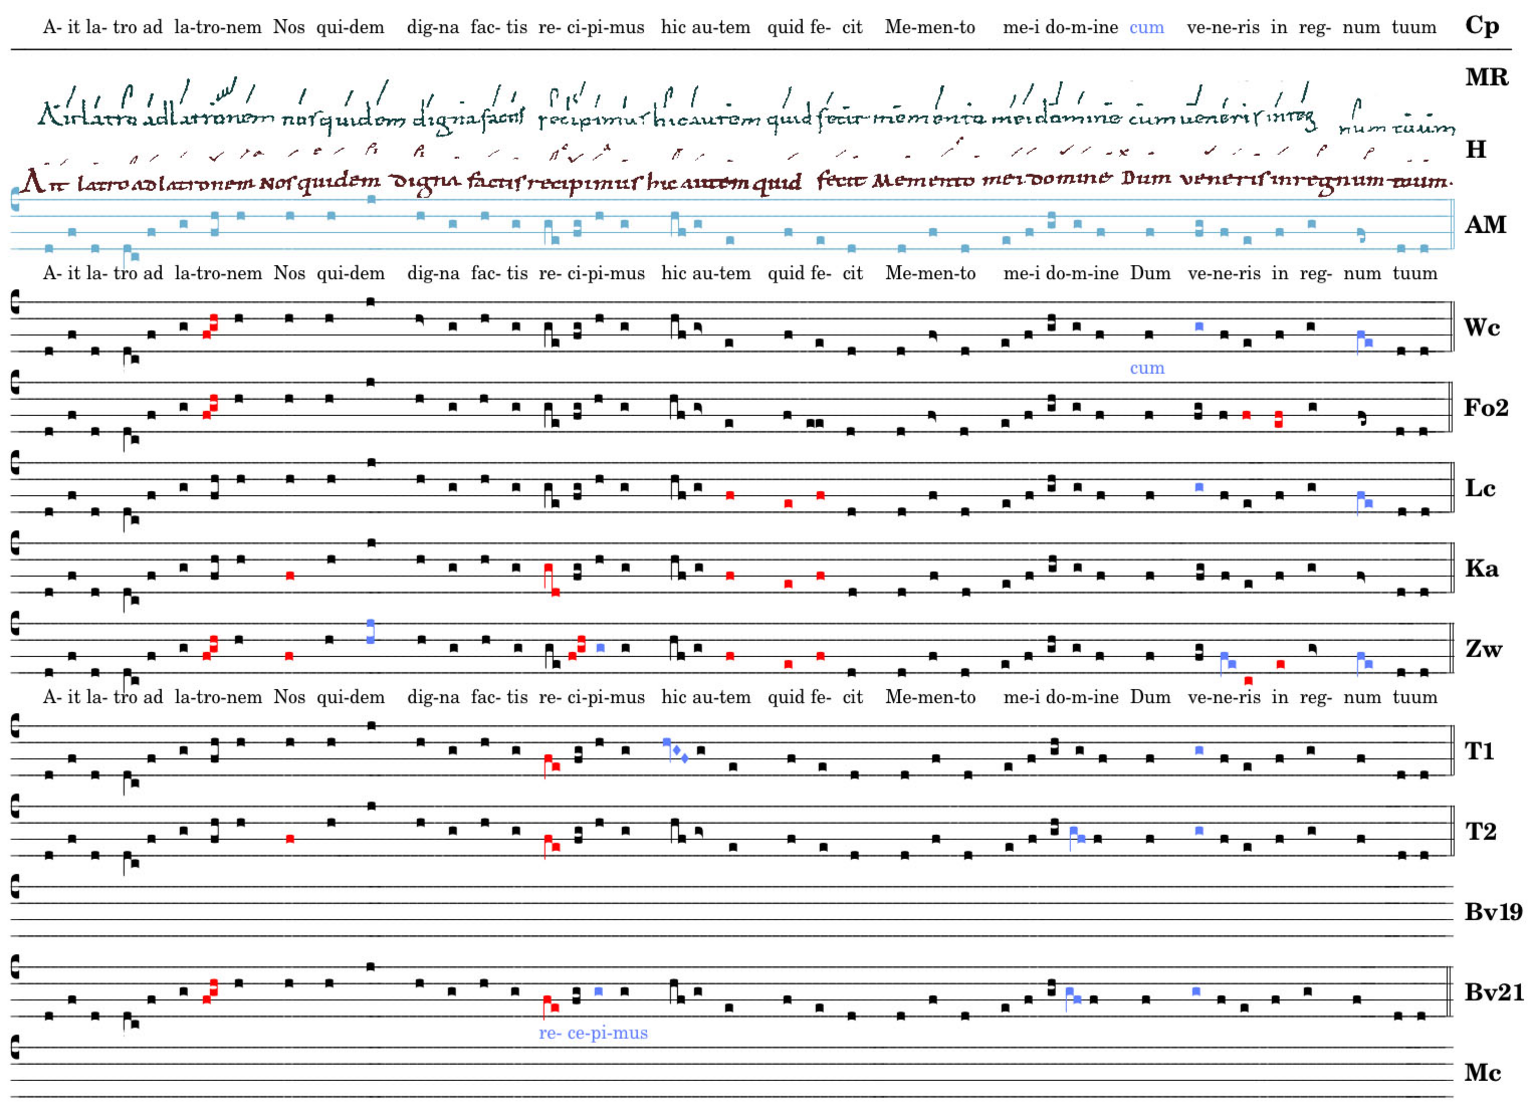 A- it la- tro ad la-tro-nem Nos qui-dem dig-na fac- tis re- ci-pi-mus hic au-tem quid fe- cit Me-men-to me-i do-m-ine cum ve-ne-ris in reg- num tuum Cp
MR
Ait latro ad latronem nos quidem digna factis recipimus hic autem quid fecit memento mei domine cum veneris in reg num tuum
H
Ait latro ad latronem Nos quidem digna factis recipimus hic autem quid fecit Memento mei domine Dum veneris in regnum tuum.
AM
A- it la- tro ad la-tro-nem Nos qui-dem dig-na fac- tis re- ci-pi-mus hic au-tem quid fe- cit Me-men-to me-i do-m-ine Dum ve-ne-ris in reg- num tuum
Wc
cum
Fo2
Lc
Ka
Zw
A- it la- tro ad la-tro-nem Nos qui-dem dig-na fac- tis re- ci-pi-mus hic au-tem quid fe- cit Me-men-to me-i do-m-ine Dum ve-ne-ris in reg- num tuum
T1
T2
Bv19
Bv21
re- ce-pi-mus
Mc